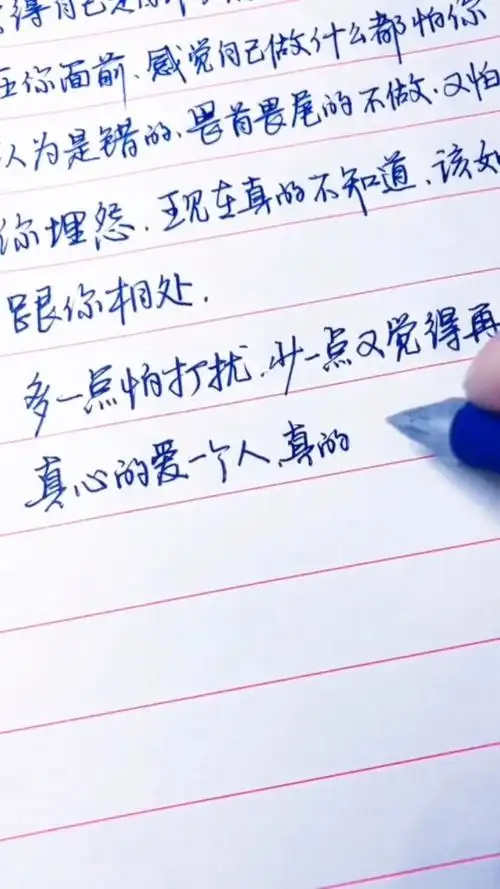 得自己
在你面前、感觉自己做什么都怕你
认为是错的、畏首畏尾的不做、又怕
你埋怨、现在真的不知道、该如
跟你相处.
多一点怕打扰、少一点又觉得再
真心的爱一个人、真的